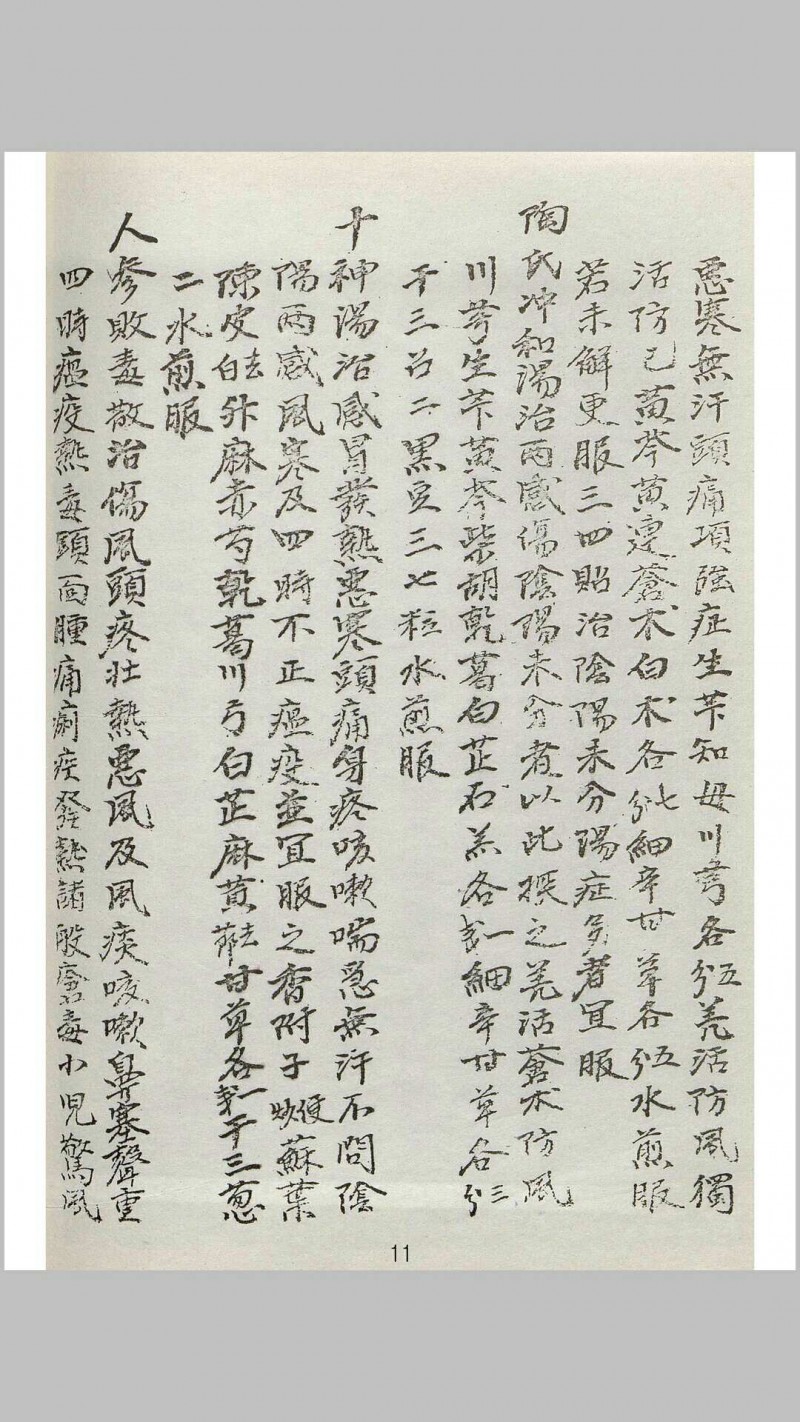 惡寒無汗頭痛項強症生芐知母川芎各五分羌活防風獨
活防己黃芩黃連蒼术白术各七分細辛甘草各五分水煎服
若未解更服三四貼治陰陽未分陽症多者宜服
陶氏冲和湯治兩感傷陰陽未分者以此探之羌活蒼术防風
川芎生芐黃芩柴胡乾葛白芷石羔各一戔細辛甘草各三分
干三召二黑豆三七粒水煎服
十神湯治感冒發熱惡寒頭痛身疼咳嗽喘急無汗不問陰
陽兩感風寒及四時不正瘟疫並宜服之香附子便炒蘇葉
陳皮去白升麻赤芍乾葛川弓白芷麻黃去節甘草各一戔干三葱
二水煎服
人參敗毒散治傷風頭疼壯熱惡風及風痰咳嗽鼻塞聲重
四時瘟疫熱毒頭面腫痛痢疾發熱諸般瘡毒小兒驚風
11